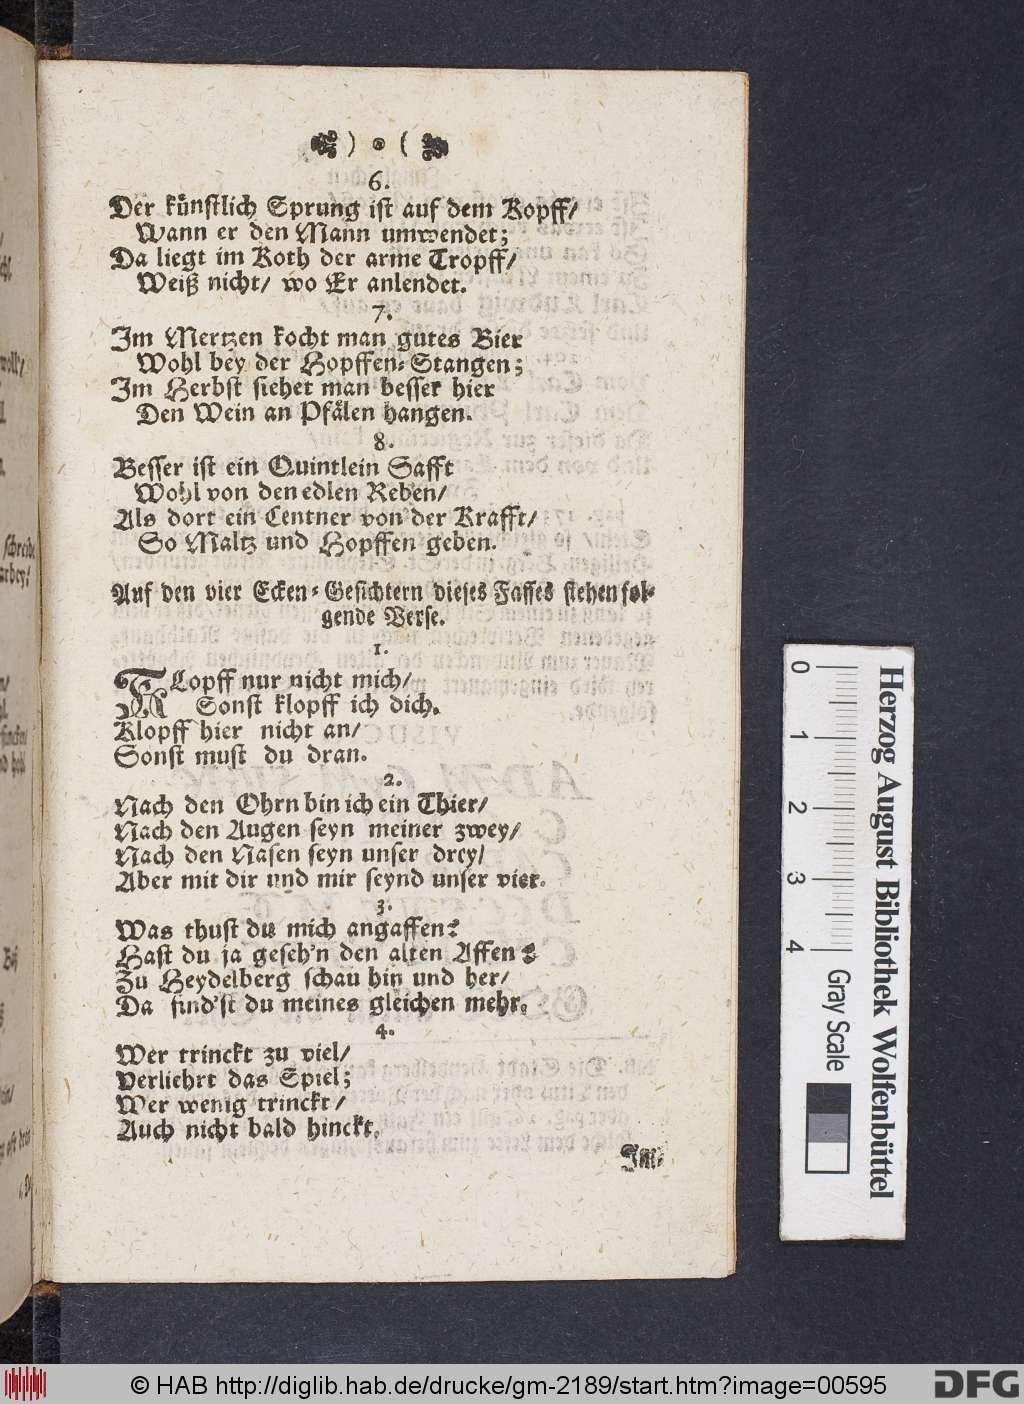 ) • (
6.
Der künstlich Sprung ist auf dem Kopff/
Wann er den Mann umwendet;
Da liegt im Koth der arme Tropff/
Weiß nicht/ wo Er anlendet.
7.
Im Mertzen kocht man gutes Bier
Wohl bey der Hopffen-Stangen;
Im Herbst siehet man besser hier
Den Wein an Pfälen hangen.
8.
Besser ist ein Quintlein Safft
Wohl von den edlen Reben/
Als dort ein Centner von der Krafft/
So Maltz und Hopffen geben.
Auf den vier Ecken-Gesichtern dieses Fasses stehen fol-
gende Verse.
1.
KLopff nur nicht mich/
Sonst klopff ich dich.
Klopff hier nicht an/
Sonst must du dran.
2.
Nach den Ohrn bin ich ein Thier/
Nach den Augen seyn meiner zwey/
Nach den Nasen seyn unser drey/
Aber mit dir und mir seynd unser vier.
3.
Was thust du mich angaffen?
Hast du ja geseh'n den alten Affen?
Zu Heydelberg schau hin und her/
Da find'st du meines gleichen mehr.
4.
Wer trinckt zu viel/
Verliehrt das Spiel;
Wer wenig trinckt/
Auch nicht bald hinckt.
Im
0 1 2 3 4
Gray Scale
Herzog August Bibliothek Wolfenbüttel
© HAB http://diglib.hab.de/drucke/gm-2189/start.htm?image=00595
DFG